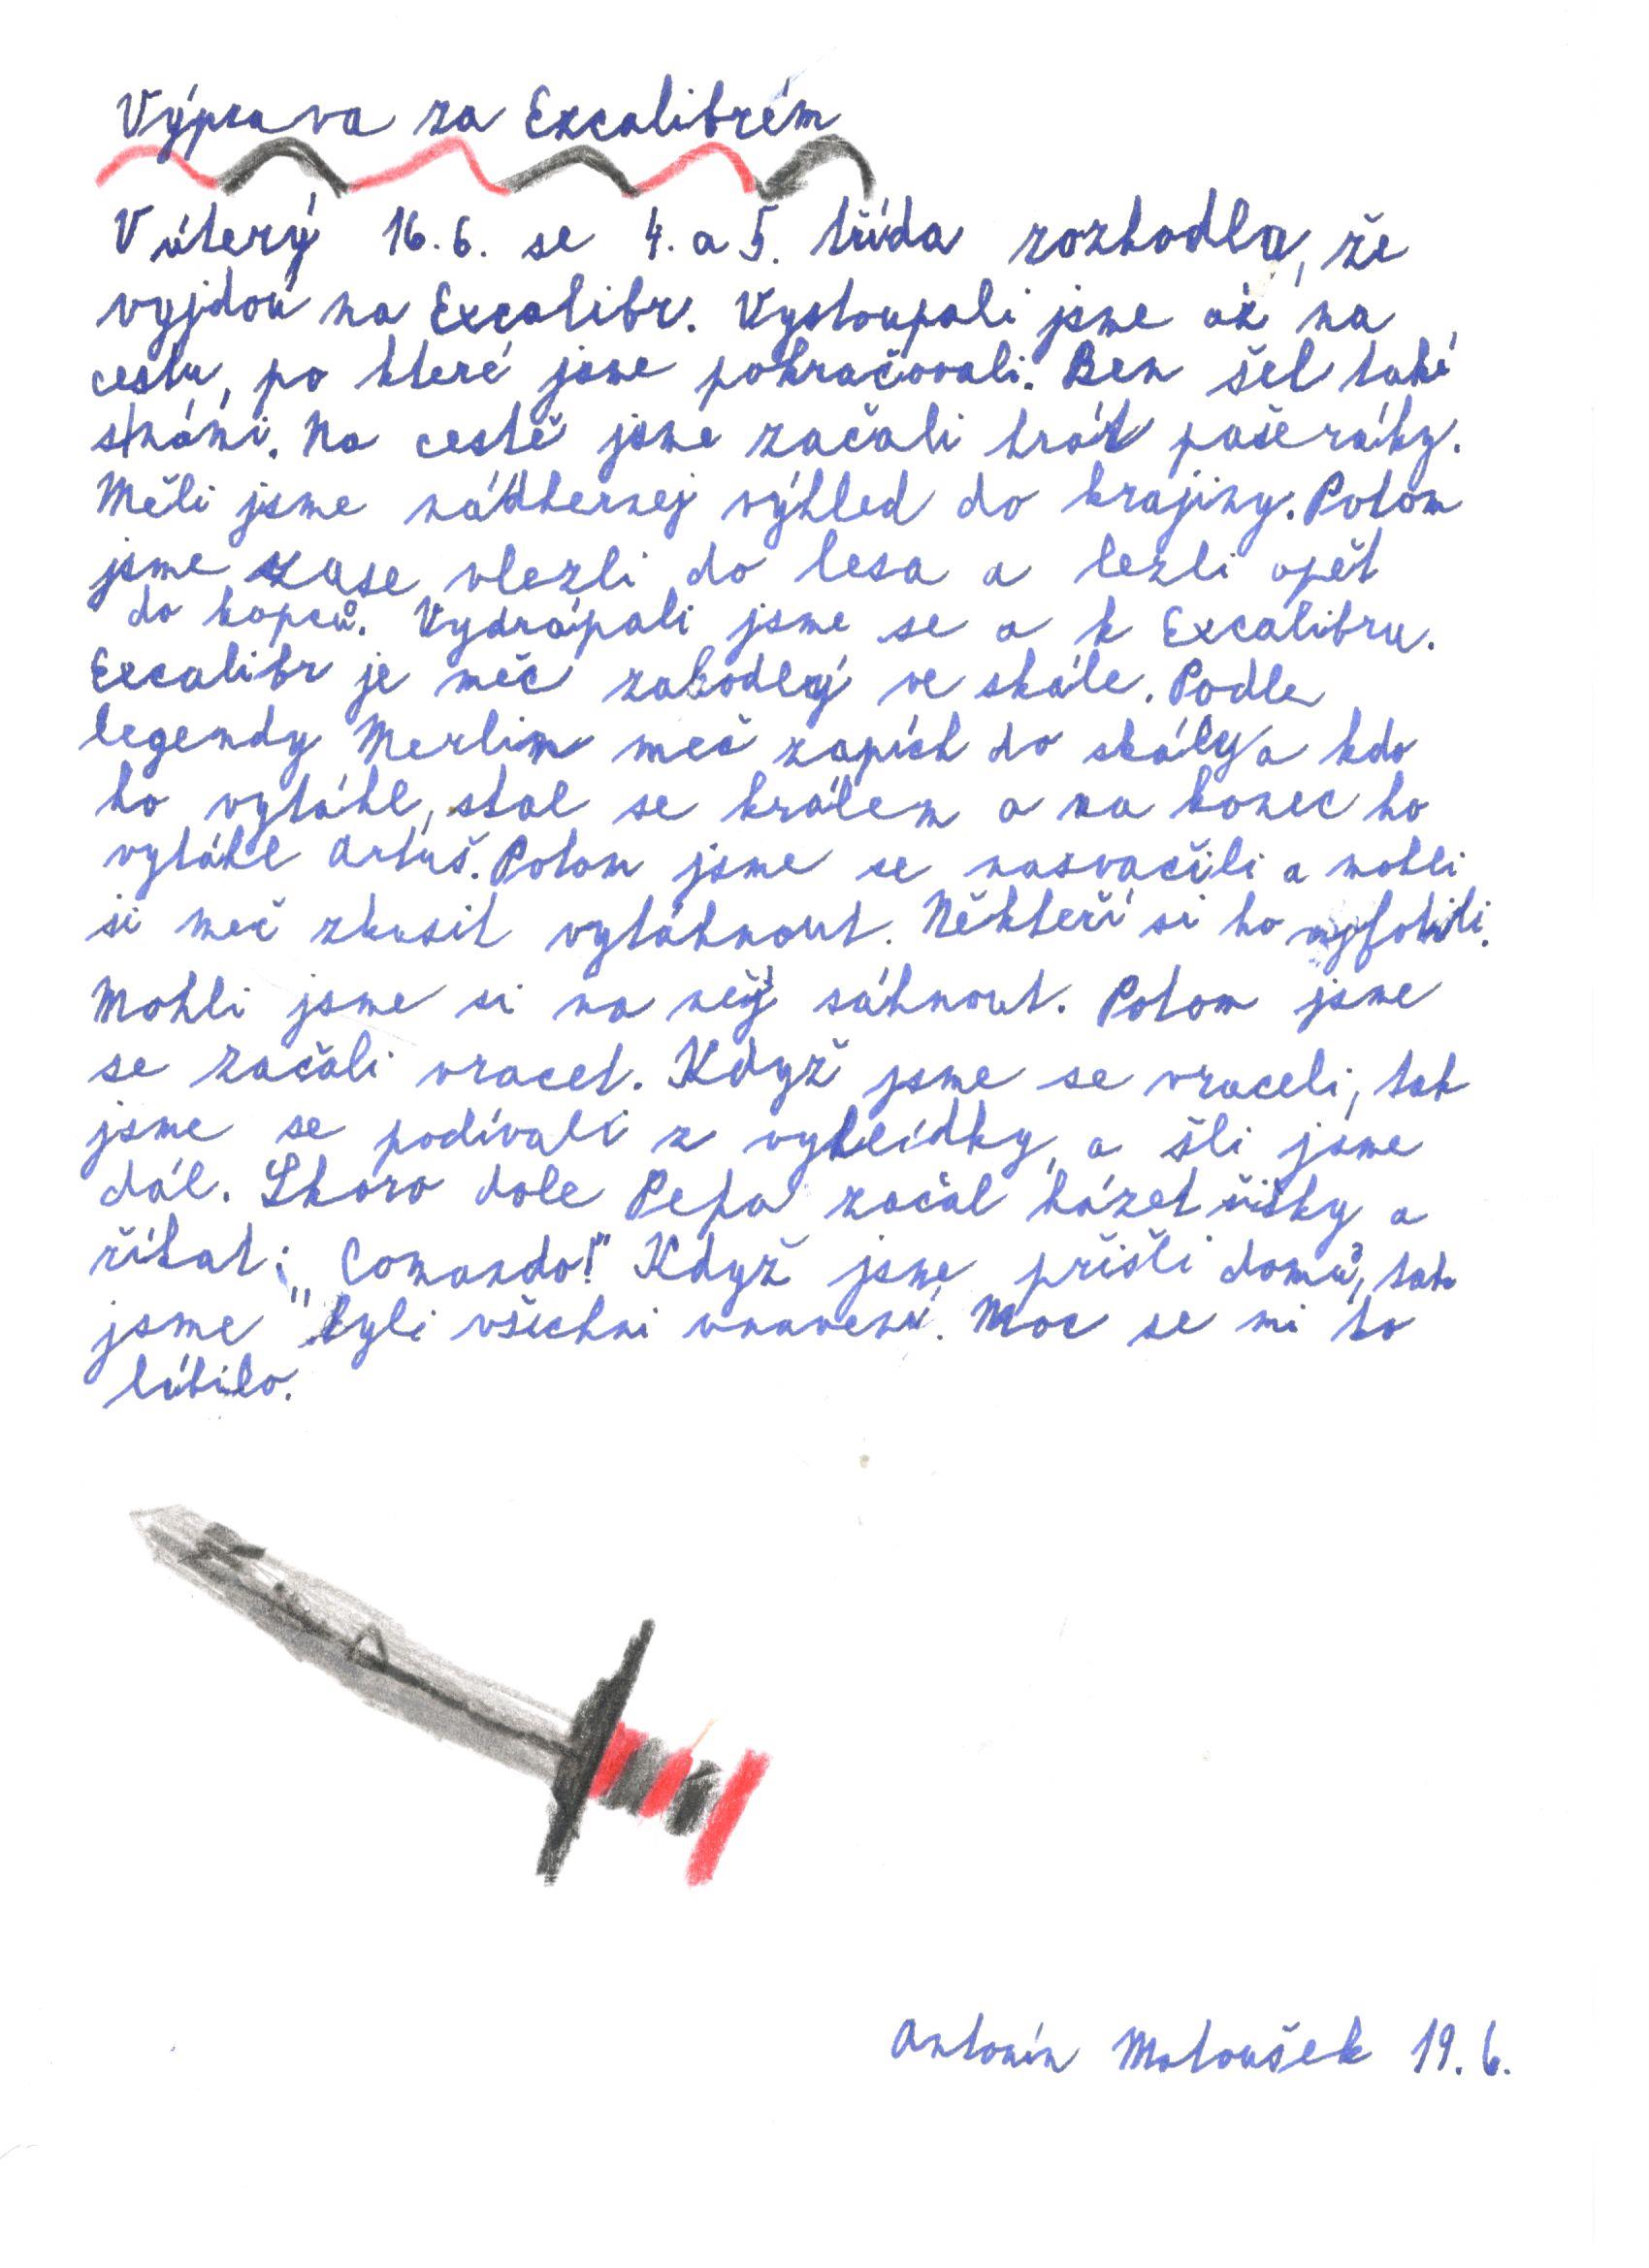 Výprava za Excalibrém
V úterý 16.6. se 4. a 5. třída rozhodla, že
vyjdou na Excalibr. Vystoupali jsme až na
cestu, po které jsme pokračovali. Ben šel také
s námi. Na cestě jsme začali hrát pašeráky.
Měli jsme nádhernej výhled do krajiny. Potom
jsme zase vlezli do lesa a lezli opět
do kopců. Vydrápali jsme se a k Excalibru.
Excalibr je meč zabodlý ve skále. Podle
legendy Merlin meč zapích do skály a kdo
ho vytáhl, stal se králem a na konec ho
vytáhl Artuš. Potom jsme se nasvačili a mohli
si meč zkusit vytáhnout. Někteří si ho vyfotili.
Mohli jsme si na něj sáhnout. Potom jsme
se začali vracet. Když jsme se vraceli, tak
jsme se podívali z vyhlídky, a šli jsme
dál. Skoro dole Pepa začal házet šišky a
říkat: „Comando!" Když jsme přišli domů, tak
jsme byli všichni unavení. Moc se mi to
líbilo.
Antonín Matoušek 19. 6.